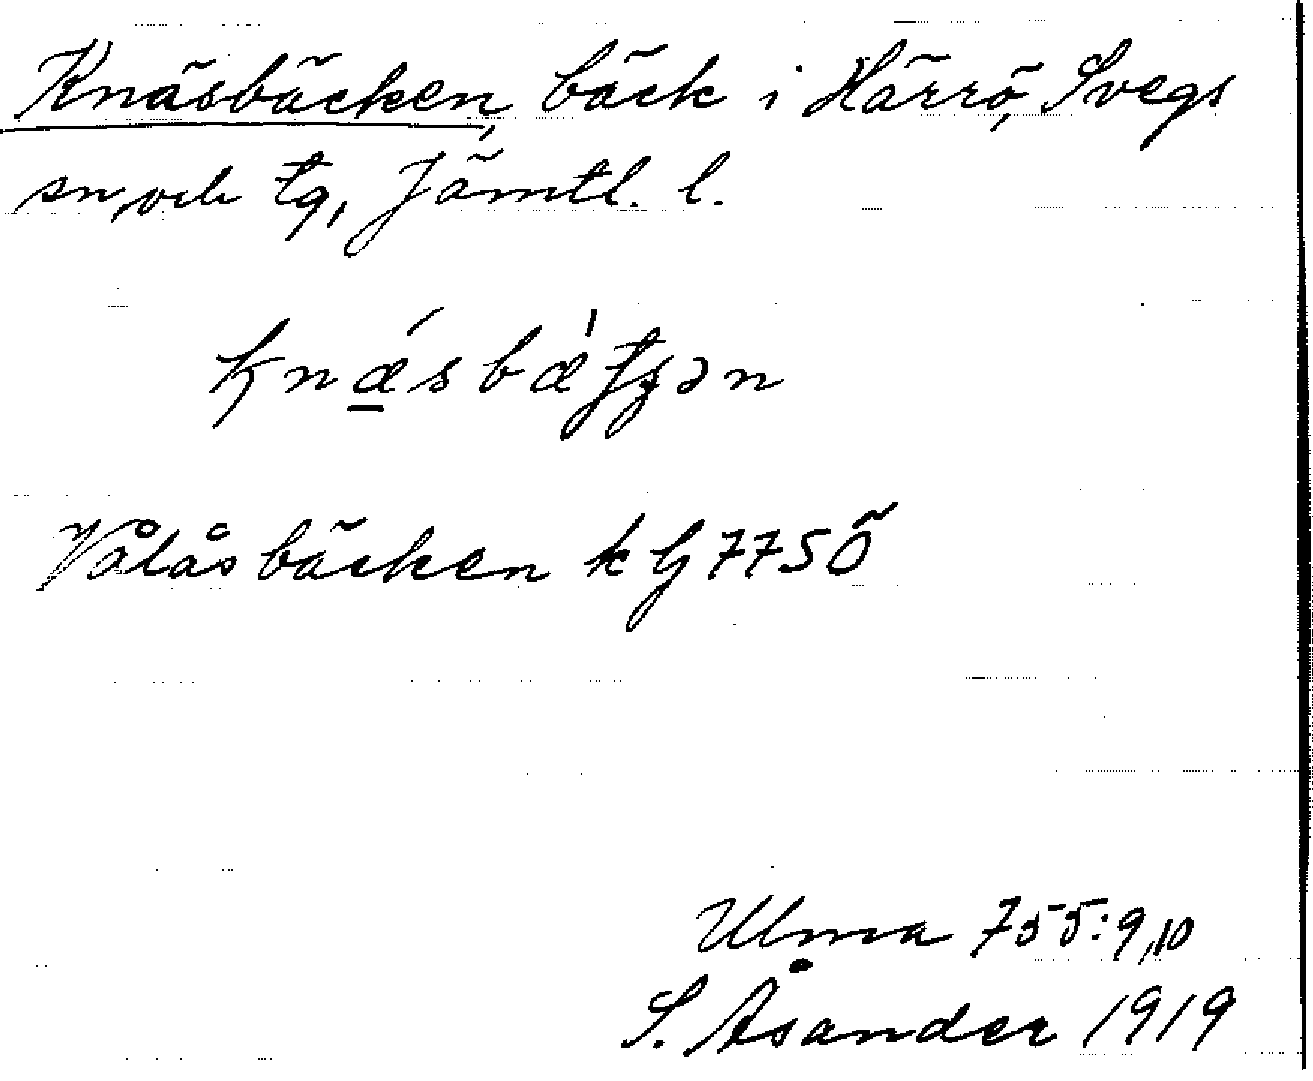 Knäsbäcken, bäck i Härrö, Svegs
sn och tg, Jämtl. l.
Vålåsbäcken k G 775Ö
Ulma 755:9,10
S. Åsander 1919